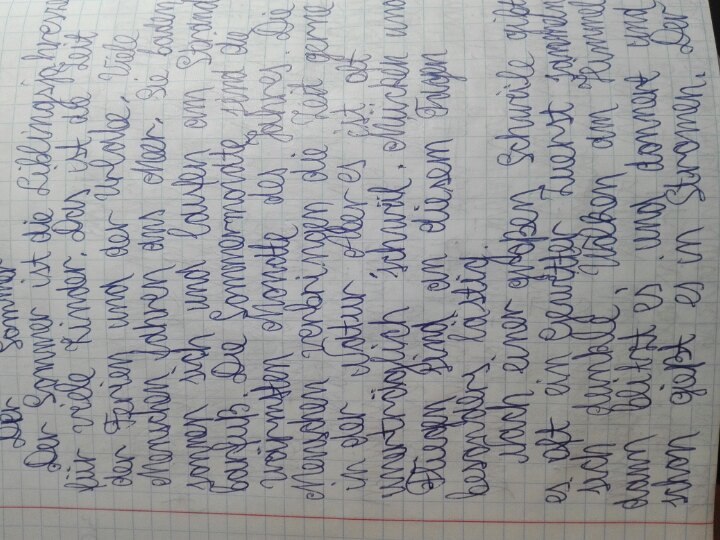 Der Sommer
Der Sommer ist die Lieblingsjahresze
für viele Kinder. Das ist die Zeit
der Ferien und der Urlabe. Viele
Menschen fahren ans Meer. Sie baden,
sonnen sich und laufen am Strand
barfuß. Die Sommermonate sind die
wärmsten Monate des Jahres. Die
Menschen verbringen die Zeit gerne
in der Natur. Aber es ist oft
unerträglich schwül. Mücken und
Fliegen sind an diesem Tagen
besonders lästig.
Nach einer großen Schwüle gibt
es oft ein Gewitter. Zuerst sammeln
sich dunkle Wolken am Himmel
dann blitzt es und donnert und
schon gießt es in Strömen. Der